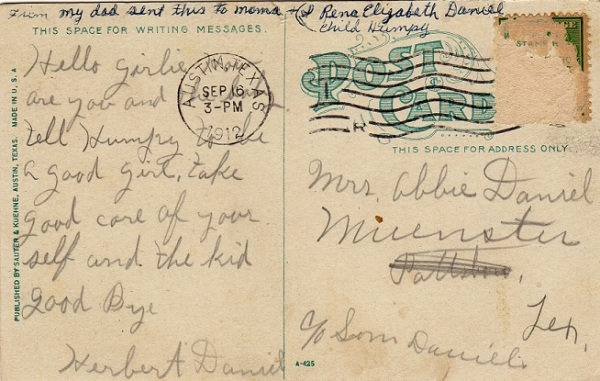 From my dad sent this to mama + (I Rena Elizabeth Daniel
Child Humpy)
THIS SPACE FOR WRITING MESSAGES.
Hello girlie,
are you and
tell Humpy to be
a good girl, take
good care of your
self and the kid
Good Bye
Herbert Daniel
PUBLISHED BY SAUTER & KUEHNE, AUSTIN, TEXAS. MADE IN U.S.A.
AUSTIN, TEXAS
SEP 16
3-PM
1912
POST
CARD
THIS SPACE FOR ADDRESS ONLY
Mrs. Abbie Daniel
Muenster
Tex.
c/o Som Daniel.
A-425